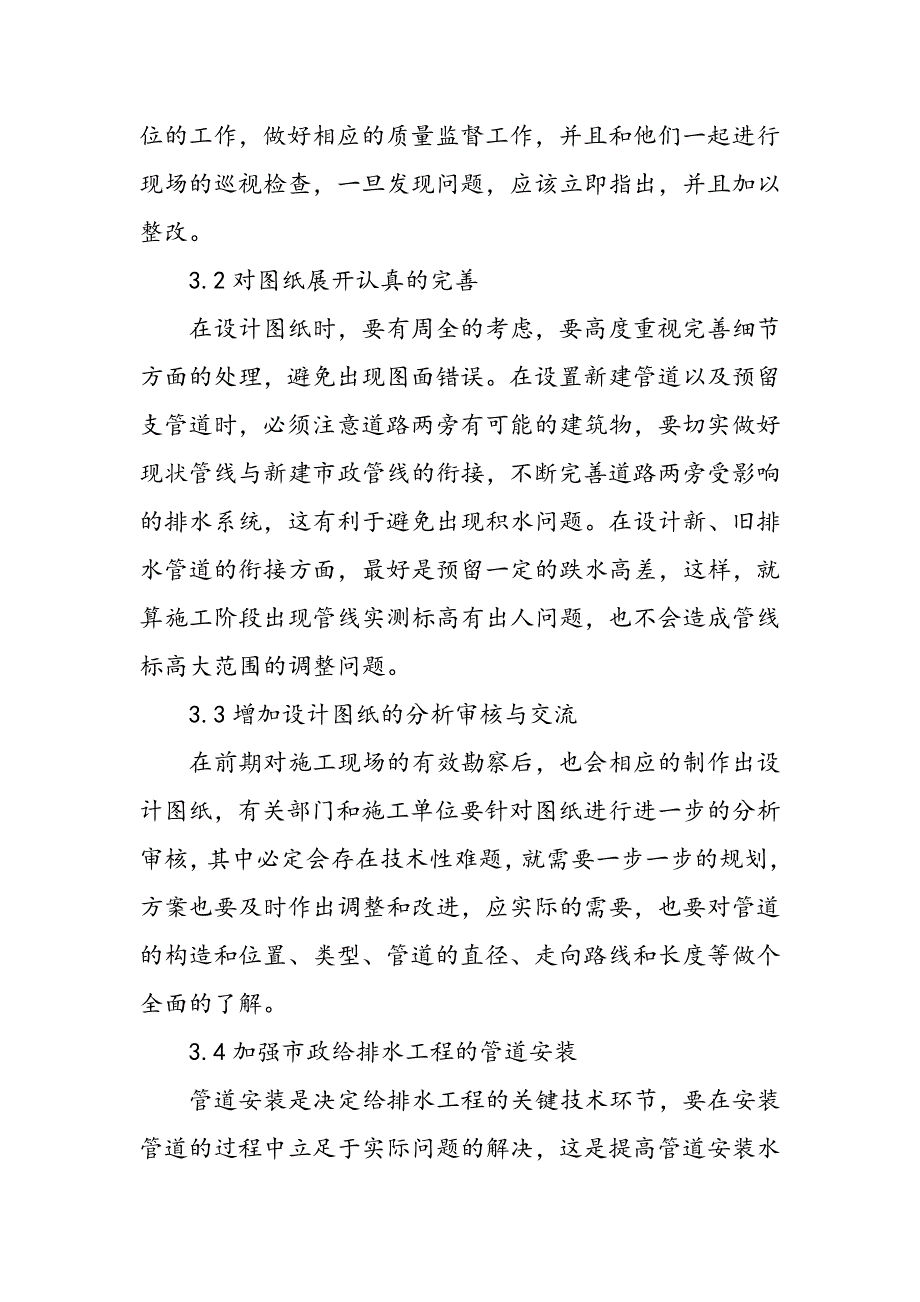 位的工作，做好相应的质量监督工作，并且和他们一起进行
现场的巡视检查，一旦发现问题，应该立即指出，并且加以
整改。
3.2 对图纸展开认真的完善
在设计图纸时，要有周全的考虑，要高度重视完善细节
方面的处理，避免出现图面错误。在设置新建管道以及预留
支管道时，必须注意道路两旁有可能的建筑物，要切实做好
现状管线与新建市政管线的衔接，不断完善道路两旁受影响
的排水系统，这有利于避免出现积水问题。在设计新、旧排
水管道的衔接方面，最好是预留一定的跌水高差，这样，就
算施工阶段出现管线实测标高有出人问题，也不会造成管线
标高大范围的调整问题。
3.3 增加设计图纸的分析审核与交流
在前期对施工现场的有效勘察后，也会相应的制作出设
计图纸，有关部门和施工单位要针对图纸进行进一步的分析
审核，其中必定会存在技术性难题，就需要一步一步的规划，
方案也要及时作出调整和改进，应实际的需要，也要对管道
的构造和位置、类型、管道的直径、走向路线和长度等做个
全面的了解。
3.4 加强市政给排水工程的管道安装
管道安装是决定给排水工程的关键技术环节，要在安装
管道的过程中立足于实际问题的解决，这是提高管道安装水